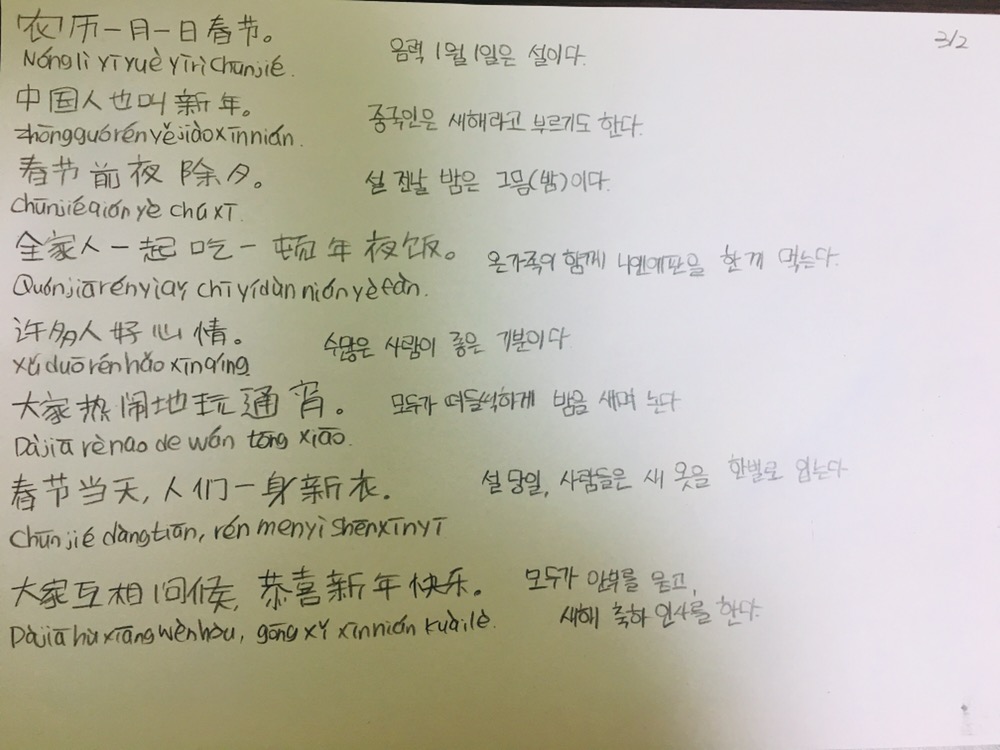 3/2
农历一月一日春节。 음력 1월 1일은 설이다.
Nónglì yīyuè yīrì Chūnjié.
中国人也叫新年。 중국인은 새해라고 부르기도 한다.
zhōngguórén yě jiào xīnnián.
春节前夜除夕。 설 전날 밤은 그믐(밤)이다.
chūnjié qián yè chú xī.
全家人一起吃一顿年夜饭。 온가족이 함께 니엔예판을 한 끼 먹는다.
Quánjiārén yìqǐ chī yídùn niányèfàn.
许多人好心情。 수많은 사람이 좋은 기분이다.
xǔ duō rén hǎo xīnqíng
大家热闹地玩通宵。 모두가 떠들썩하게 밤을 새며 논다
Dàjiā rènao de wán tōng xiāo.
春节当天,人们一身新衣。 설 당일, 사람들은 새 옷을 한벌로 입는다
Chūnjié dàngtiān, rén men yì shēn xīn yī
大家互相问候,恭喜新年快乐。 모두가 안부를 묻고,
새해 축하 인사를 한다.
Dàjiā hù xiāng wènhòu, gōng xǐ xīnnián kuàilè.